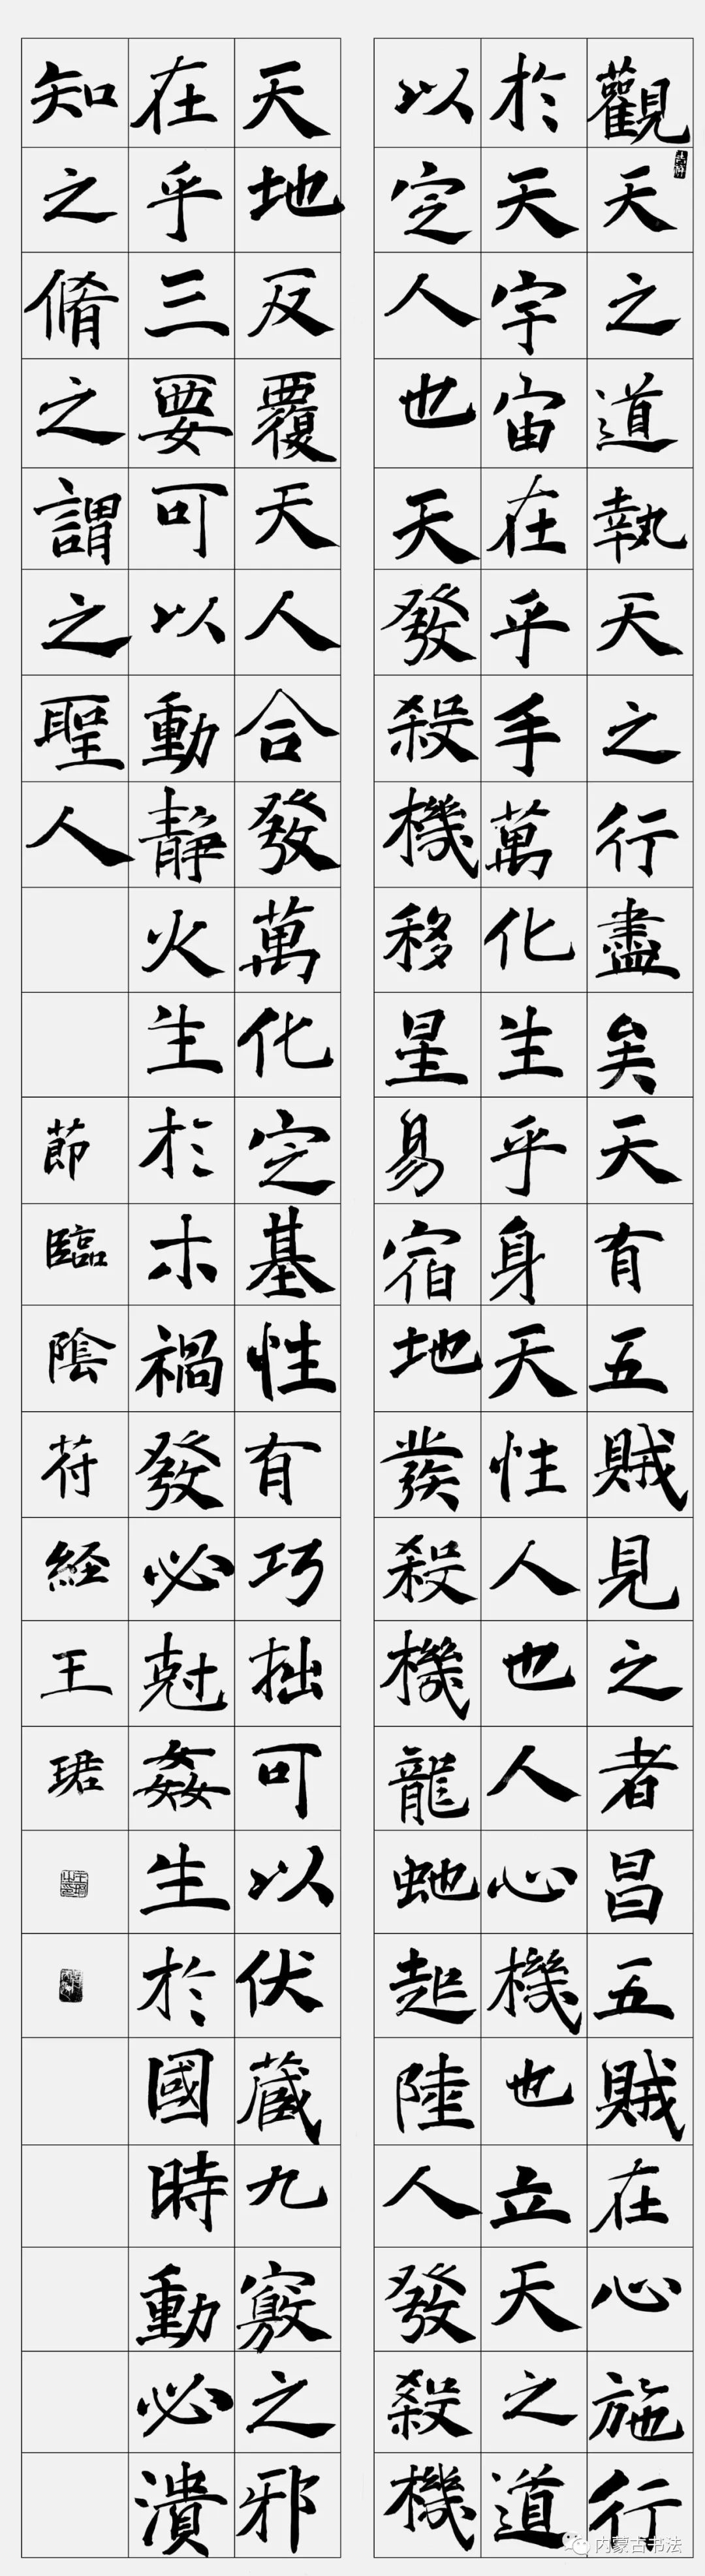 觀天之道執天之行盡矣天有五賊見之者昌五賊在心施行
於天宇宙在乎手萬化生乎身天性人也人心機也立天之道
以定人也天發殺機移星易宿地發殺機龍虵起陸人發殺機
天地反覆天人合發萬化定基性有巧拙可以伏藏九竅之邪
在乎三要可以動靜火生於木禍發必尅姦生於國時動必潰
知之脩之謂之聖人
節臨陰符経王珺
内蒙古书法